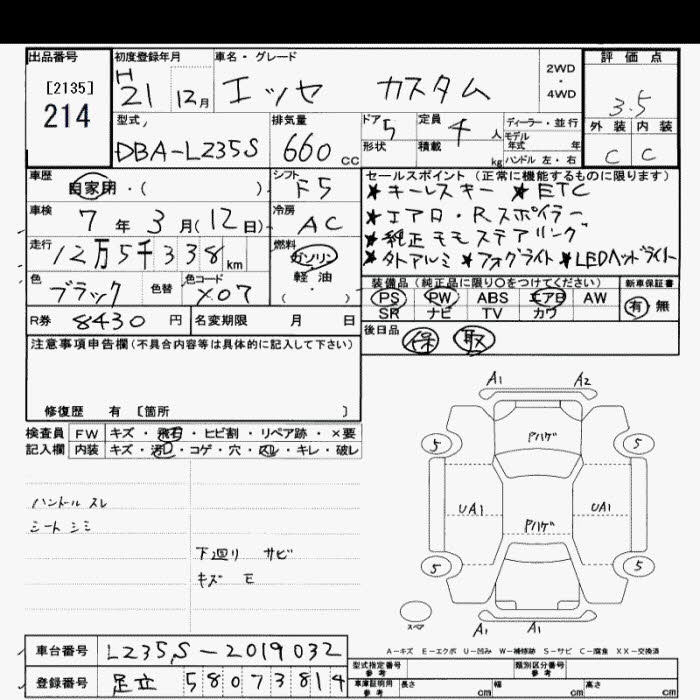 出品番号 初度登録年月 車名・グレード 評価点
[2135] H 2WD
214 21 12月 エッセ カスタム ・ 4WD 3.5
型式 排気量 ドア 5 定員 4人 ディーラー・並行 外装 内装
DBA-L235S 660cc 形状 積載 kg モデル年式 年 C C
ハンドル 左・右
車歴 シフト セールスポイント(正常に機能するものに限ります)
自家用・( ) F5 ★キーレスキー ★ETC
車検 7年3月(12日) 冷房 AC ★エアロ・Rスポイラー
★純正モモステアリング
走行 12万5千338km 燃料 ガソリン ★外アルミ ★フォグライト ★LEDヘッドライト
色 ブラック 色替 色コード X07 軽油 ( ) 装備品(純正品に限り○をつけてください) 新車保証書
PS PW ABS エアB AW 有 無
R券 8430円 名変期限 月 日 SR ナビ TV カワ
注意事項申告欄(不具合内容等は具体的に記入して下さい) 後日品 保 取
修復歴 有 [箇所 ]
検査員 FW キズ・飛石・ヒビ割・リペア跡・×要
記入欄 内装 キズ・汚れ・コゲ・穴・スレ・キレ・破レ
A1 A2
Pハゲ
5 5
ハンドル スレ UA1 UA1
シート シミ Pハゲ
下廻り サビ
キズ E 5 5
スペア A1 A1
A-キズ E-エクボ U-凹み W-補修跡 S-サビ C-腐食 XX-交換済
車台番号 L235S-2019032 型式指定番号 参考 類別区分番号 参考
登録番号 足立 580 73814 車庫証明用 参考 長さ cm 幅 cm 高さ cm